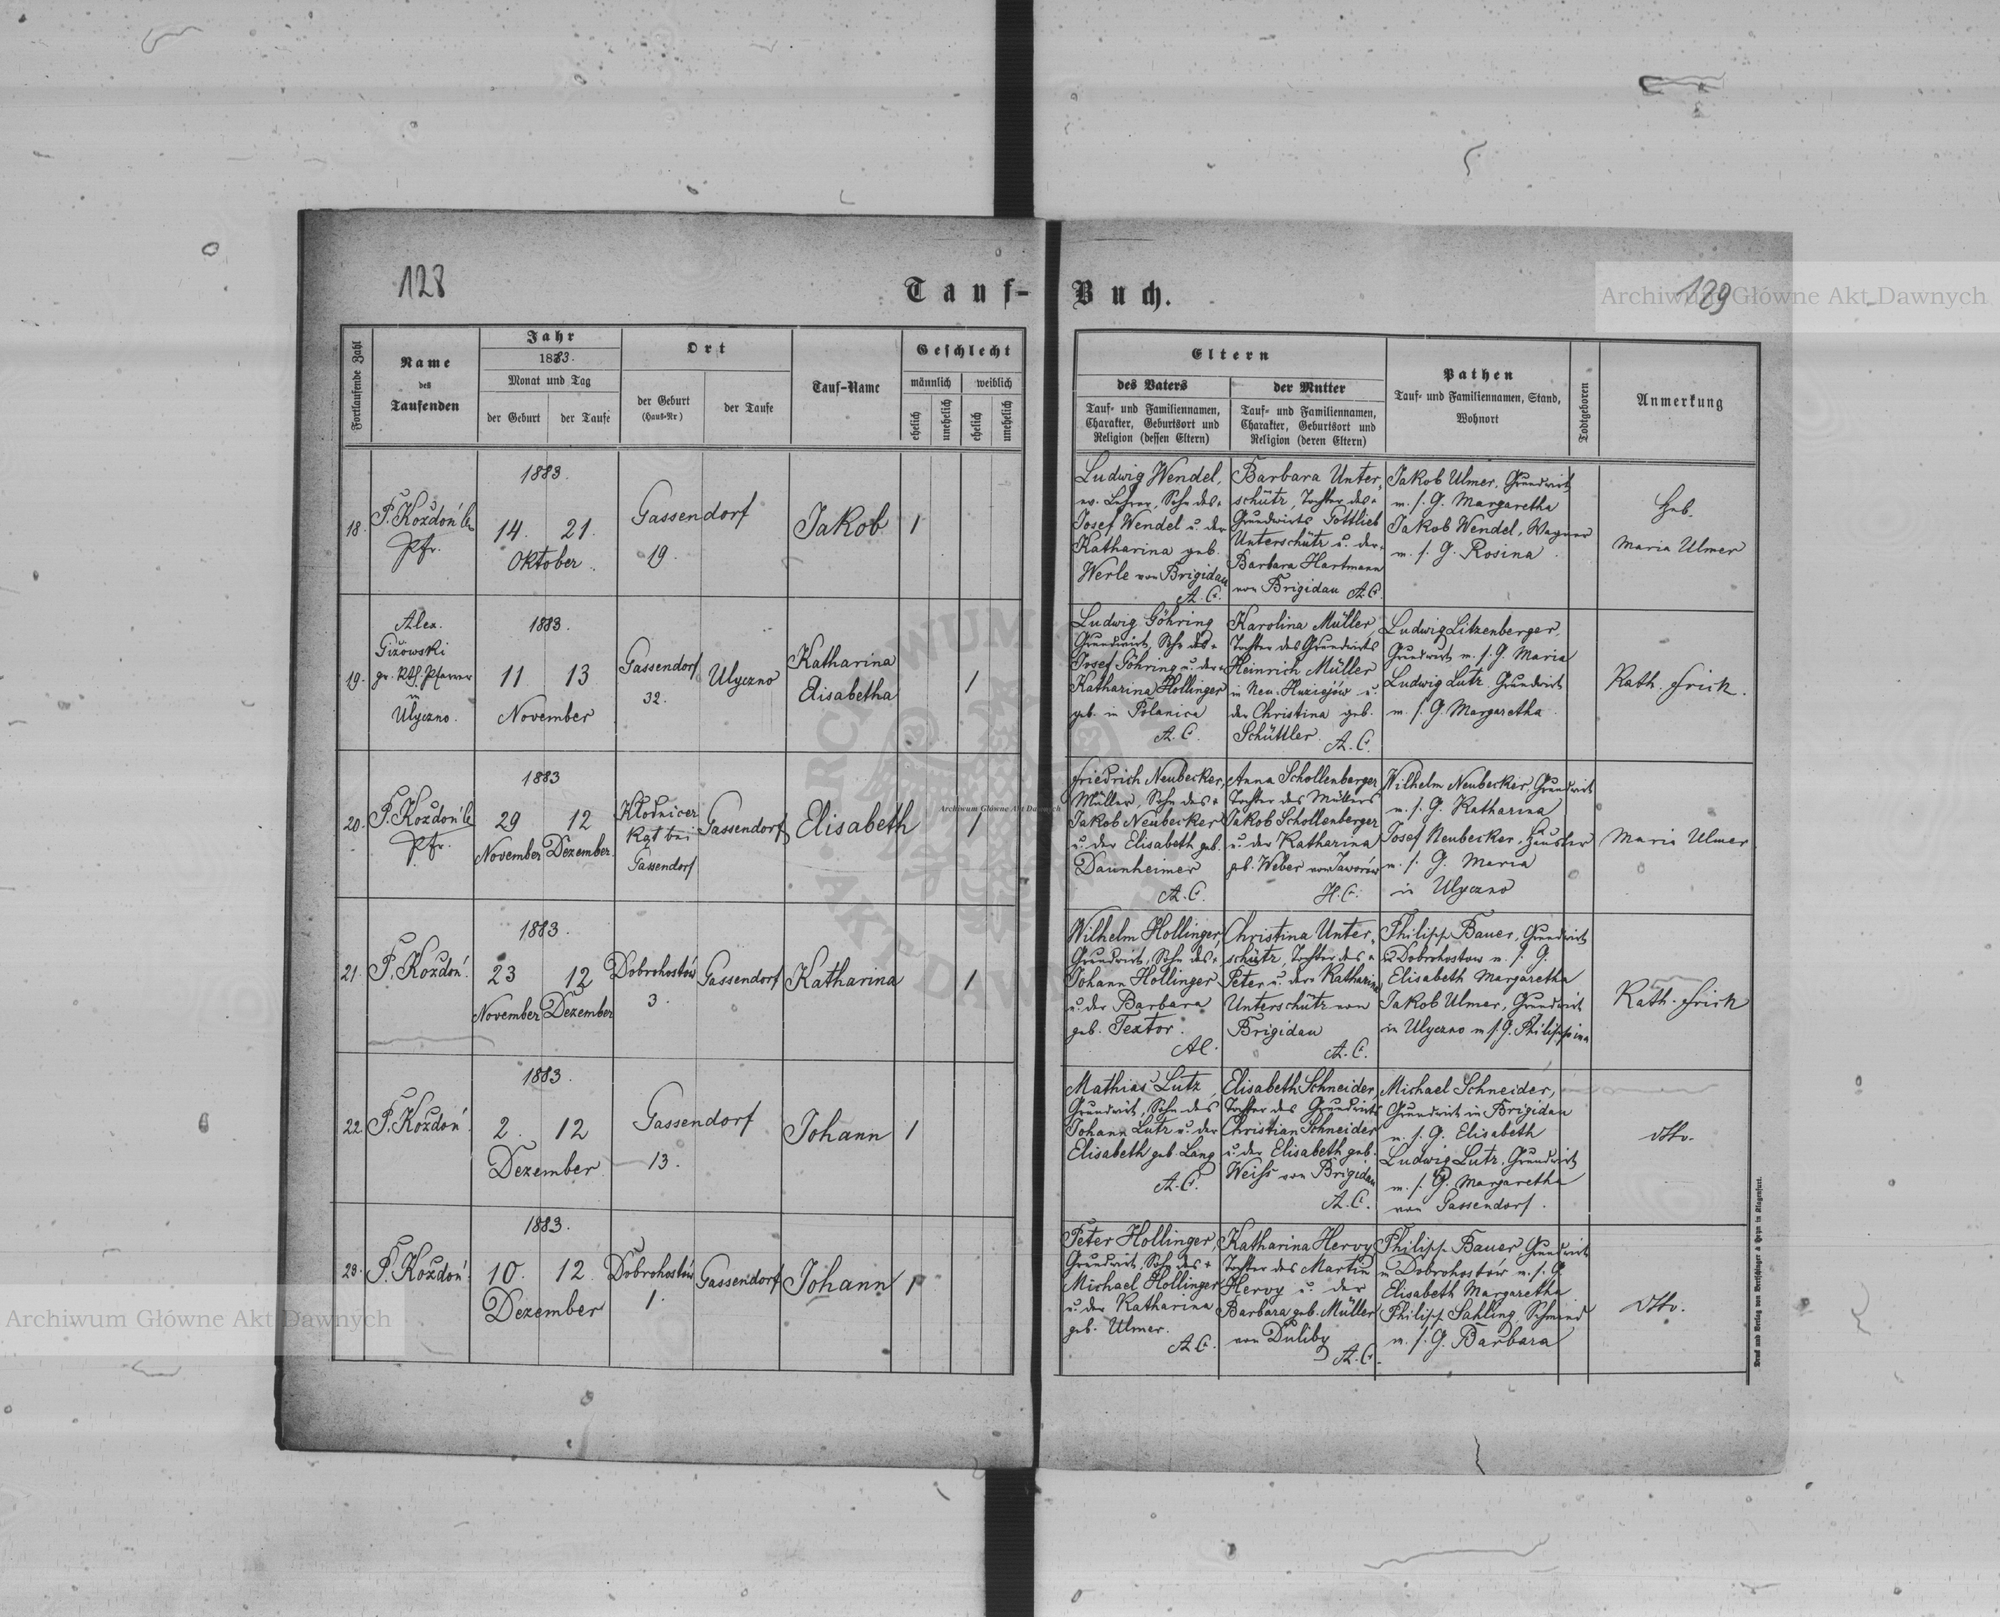 128
Tauf-
Buch.
129
Archiwum Główne Akt Dawnych
Fortlaufende Zahl
Name
des
Taufenden
Jahr
1883.
Monat und Tag
der Geburt
der Taufe
Ort
der Geburt
(Haus-Nr)
der Taufe
Tauf-Name
Geschlecht
männlich
weiblich
ehelich
unehelich
ehelich
unehelich
Eltern
des Vaters
Tauf- und Familiennamen,
Charakter, Geburtsort und
Religion (dessen Eltern)
der Mutter
Tauf- und Familiennamen,
Charakter, Geburtsort und
Religion (deren Eltern)
Pathen
Tauf- und Familiennamen, Stand,
Wohnort
Todtgeboren
Anmerkung
18.
F. Kozdoń
Pfr.
1883.
14. 21.
Oktober.
Gassendorf
19.
Jakob
1
Ludwig Wendel,
ev. Lehrer, Sohn des
Josef Wendel u. der
Katharina geb.
Werle von Brigidau
A. C.
Barbara Unter-
schütz, Tochter des
Grundwirts Gottlieb
Unterschütz u. der
Barbara Hartmann
von Brigidau A. C.
Jakob Ulmer, Grundwirt,
m. s. G. Margaretha
Jakob Wendel, Wagner
m. s. G. Rosina
Heb.
Maria Ulmer
19.
Alex.
Gizowski
gr. kth. Pfarrer
in
Ulyczno.
1883.
11 13
November
Gassendorf
32.
Ulyczno
Katharina
Elisabetha
1
Ludwig Göhring
Grundwirt, Sohn des
Josef Göhring u. der
Katharina Hollinger
geb. in Polanica
A. C.
Karolina Müller
Tochter des Grundwirts
Heinrich Müller
in Neu-
u.
der Christina geb.
Schüttler A. C.
Ludwig Litzenberger,
Grundwirt m. s. G. Maria
Ludwig Lutz, Grundwirt
m. s. G. Margaretha
Kath. Frick.
20.
F. Kozdoń
Pfr.
1883
29 12
November Dezember
Kłodnicer
Rgt bei
Gassendorf
Gassendorf
Elisabeth
1
Friedrich Neubecker,
Müller, Sohn des
Jakob Neubecker
u. der Elisabeth geb.
Daunheimer
A. C.
Anna Schollenberger
Tochter des Müllers
Jakob Schollenberger
u. der Katharina
geb. Weber von Jaworów
H. C.
Wilhelm Neubecker, Grundwirt
m. s. G. Katharina
Josef Neubecker, Häusler
m. s. G. Maria
in Ulyczno
Maria Ulmer
21.
F. Kozdoń.
1883.
23 12
November Dezember
Dobrohostów
3.
Gassendorf
Katharina
1
Wilhelm Hollinger,
Grundwirt, Sohn des
Johann Hollinger
u. der Barbara
geb. Textor.
AC.
Christina Unter-
schütz, Tochter des
Peter u. der Katharina
Unterschütz von
Brigidau
A. C.
Philipp Bauer, Grundwirt
in Dobrohostow m. s. G.
Elisabeth Margaretha
Jakob Ulmer, Grundwirt
in Ulyczno m. s. G. Philippina
Kath. Frick
22
F. Kozdoń.
1883.
2. 12
Dezember
Gassendorf
13.
Johann
1
Mathias Lutz,
Grundwirt, Sohn des
Johann Lutz u. der
Elisabeth geb. Lang
A. C.
Elisabeth Schneider,
Tochter des Grundwirts
Christian Schneider
u. der Elisabeth geb.
Weiss von Brigidau
A. C.
Michael Schneider,
Grundwirt in Brigidau
m. s. G. Elisabeth
Ludwig Lutz, Grundwirt
m. s. G. Margaretha
von Gassendorf.
dtto.
23.
F. Kozdoń.
1883.
10. 12
Dezember
Dobrohostów
1.
Gassendorf
Johann
1
Peter Hollinger,
Grundwirt, Sohn des
Michael Hollinger
u. der Katharina
geb. Ulmer.
A. C.
Katharina Hervy
Tochter des Martin
Hervy u. der
Barbara geb. Müller
von Duliby
A. C.
Philipp Bauer, Grundwirt
in Dobrohostów m. s. G.
Elisabeth Margaretha
Philipp Sahling, Schmied
m. s. G. Barbara
dtto.
Druck und Verlag von Bertschinger & Heyn in Klagenfurt.
Archiwum Główne Akt Dawnych
Archiwum Główne Akt Dawnych